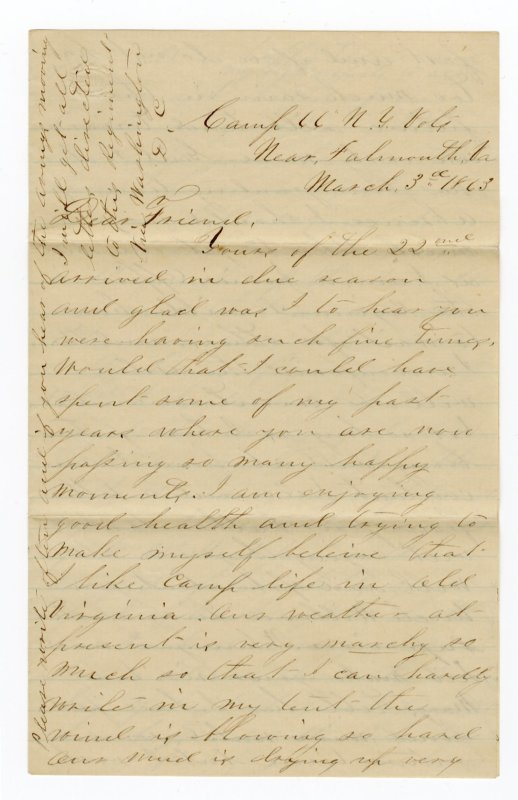 Camp 66 N. Y. Vols
Near, Falmouth, Va
March, 3rd 1863
Dear Friend,
Yours of the 22nd
arrived in due season
and glad was I to hear you
were having such fine times,
Would that I could have
spent some of my past
years where you are now
passing so many happy
moments. I am enjoying
good health and trying to
make myself beleive that
I like Camp life in old
Virginia. Our weather at
present is very marchy so
much so that I can hardly
write in my tent the
wind is blowing so hard
our mud is drying up very
Please write often and if you hear of the army moving
I will get all
letters directed
to this Regiment
Via Washington
D. C.